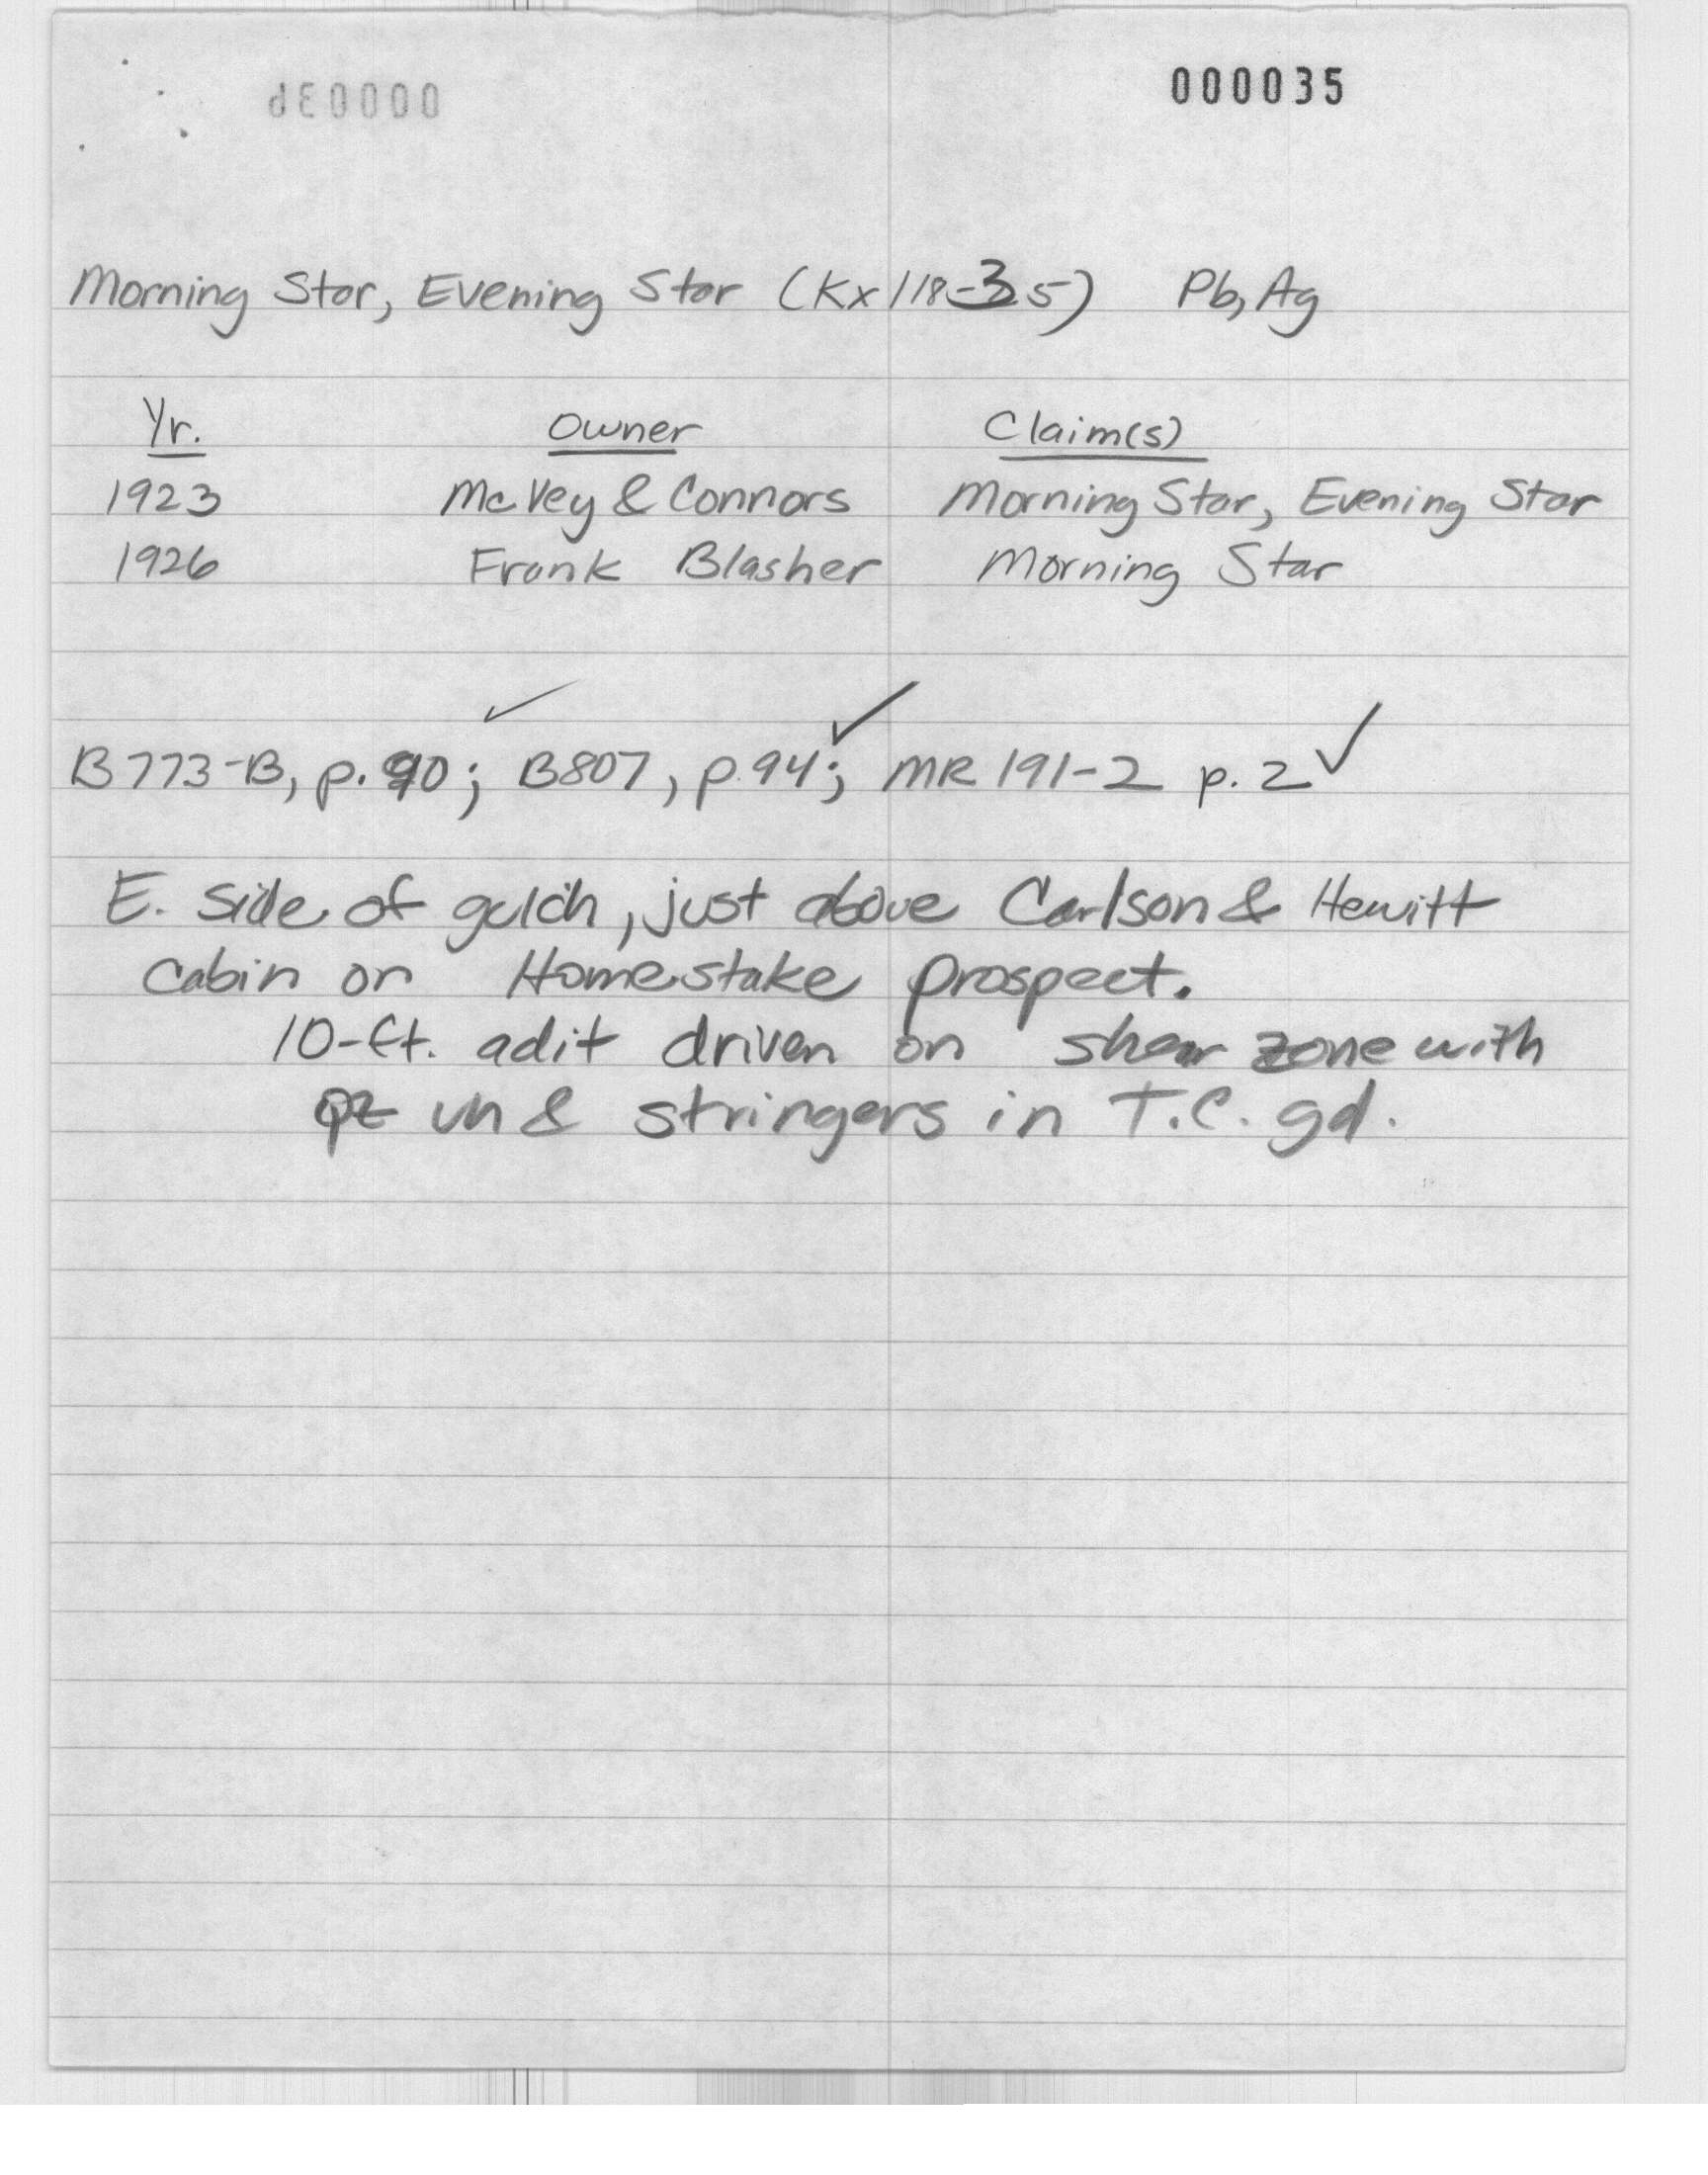 000035
Morning Star, Evening Star (Kx118-35) Pb, Ag
Yr. Owner Claim(s)
1923 McVey & Connors Morning Star, Evening Star
1926 Frank Blasher Morning Star
B773-B, p.90; B807, p.94; MR 191-2 p. 2
E. Side of gulch, just above Carlson & Hewitt
Cabin or Homestake prospect.
10-ft. adit driven on shear zone with
qz vn & stringers in T.C. gd.